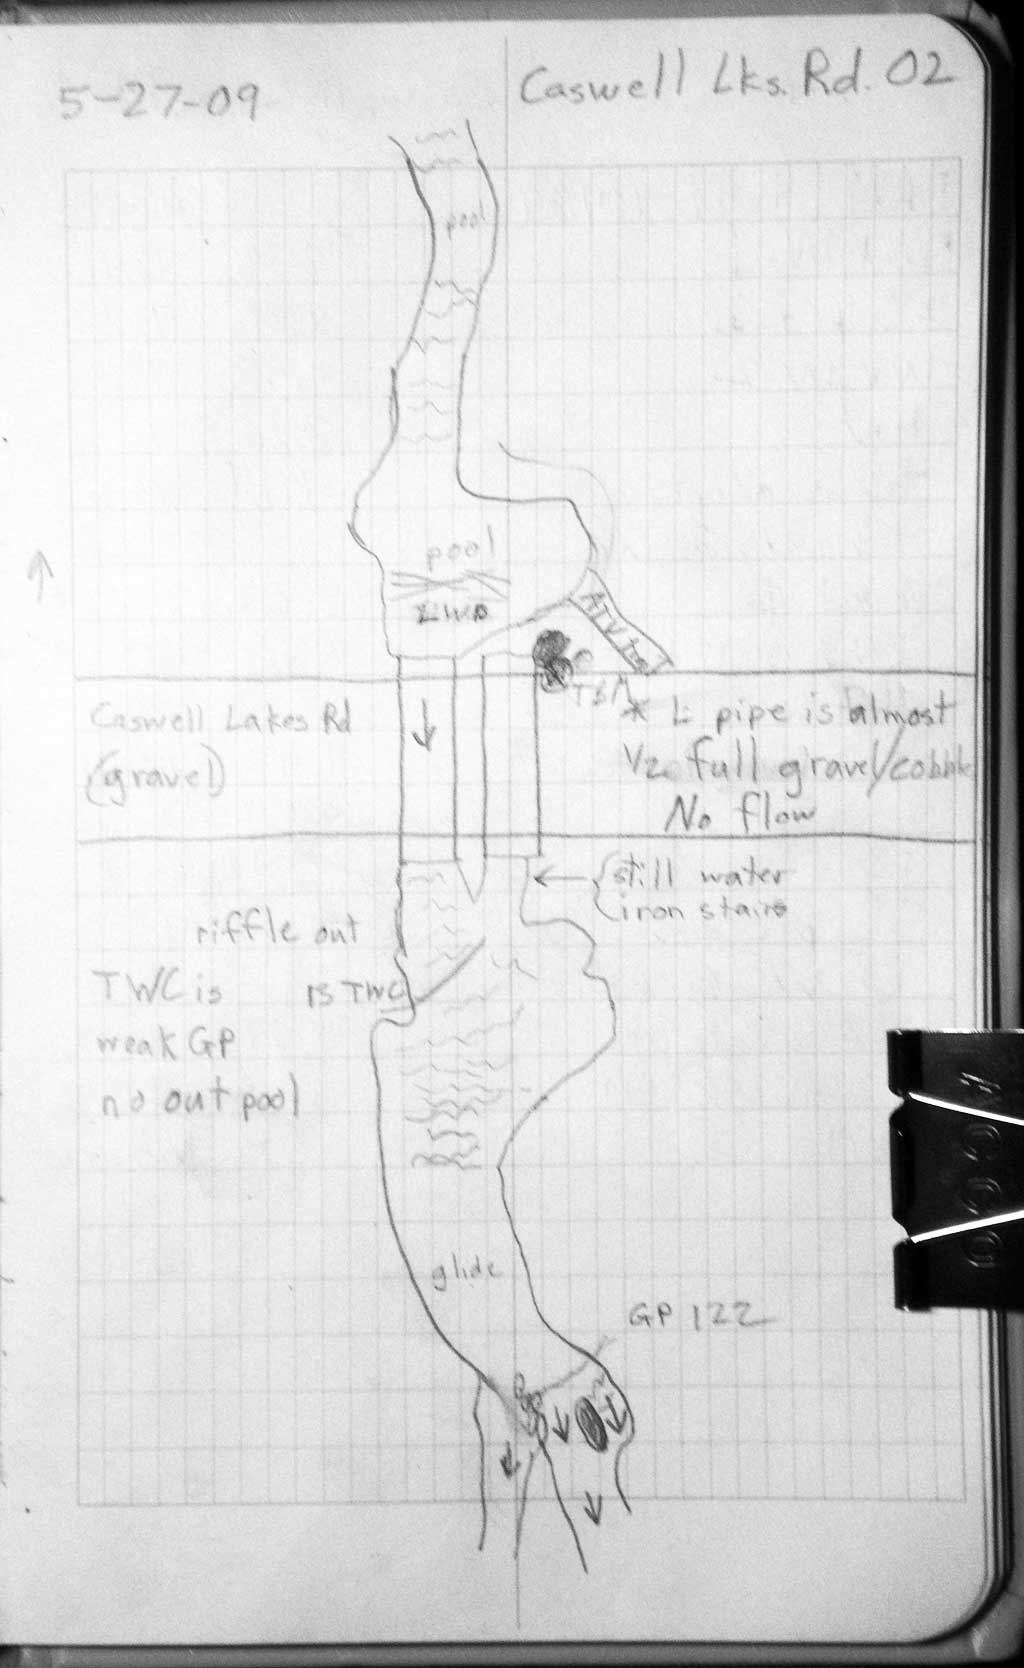 5-27-09
Caswell Lks. Rd. 02
pool
pool
LWD
ATV
TBM
Caswell Lakes Rd
(gravel)
* L pipe is almost
1/2 full gravel/cobble
No flow
still water
iron stairs
riffle out
TWC is
15 TWC
weak GP
no out pool
glide
GP 122
ACCO